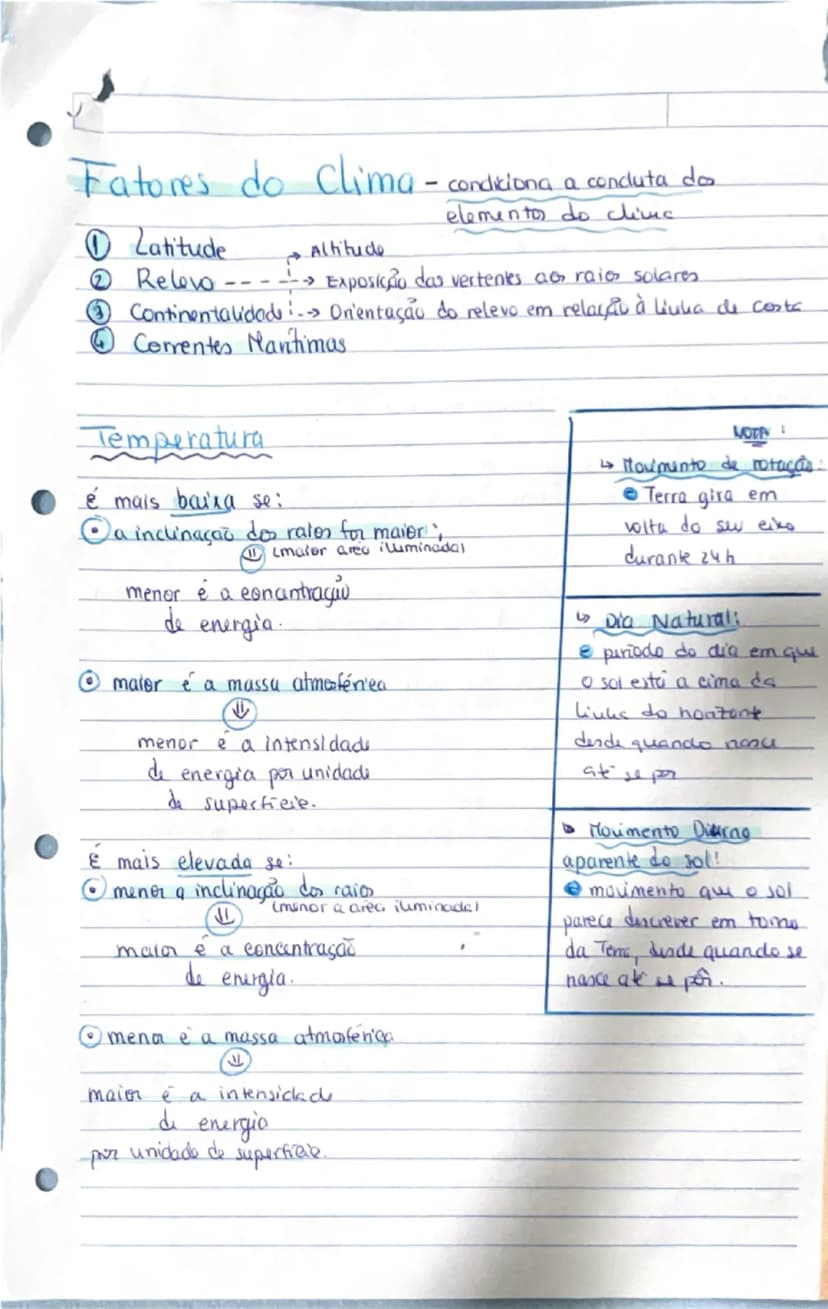 Fatores do Clima - condiciona a conduta dos
elementos do clima
① Latitude → Altitude
② Relevo ----→ Exposição das vertentes aos raios solares
③ Continentalidade --> Orientação do relevo em relação à linha de costa
④ Correntes Marítimas
Temperatura
é mais baixa se:
a inclinação dos raios for maior;
(maior area iluminada)
menor é a concentração
de energia.
maior é a massa atmosférica
menor é a intensidade
de energia por unidade
de superficie.
É mais elevada se:
menor a inclinação dos raios
(menor a area iluminada)
maior é a concentração
de energia.
menor é a massa atmosférica
maior é a intensidade
de energia
por unidade de superficie.
NOTA:
↳ Movimento de rotação:
Terra gira em
volta do seu eixo
durante 24h
↳ Dia Natural:
periodo do dia em que
o sol está a cima da
linha do horizonte
desde quando nasce
até se por
↳ Movimento Diurno
aparente do sol!
movimento que o sol
parece descrever em torno
da Terra, desde quando se
nasce até se pôr.